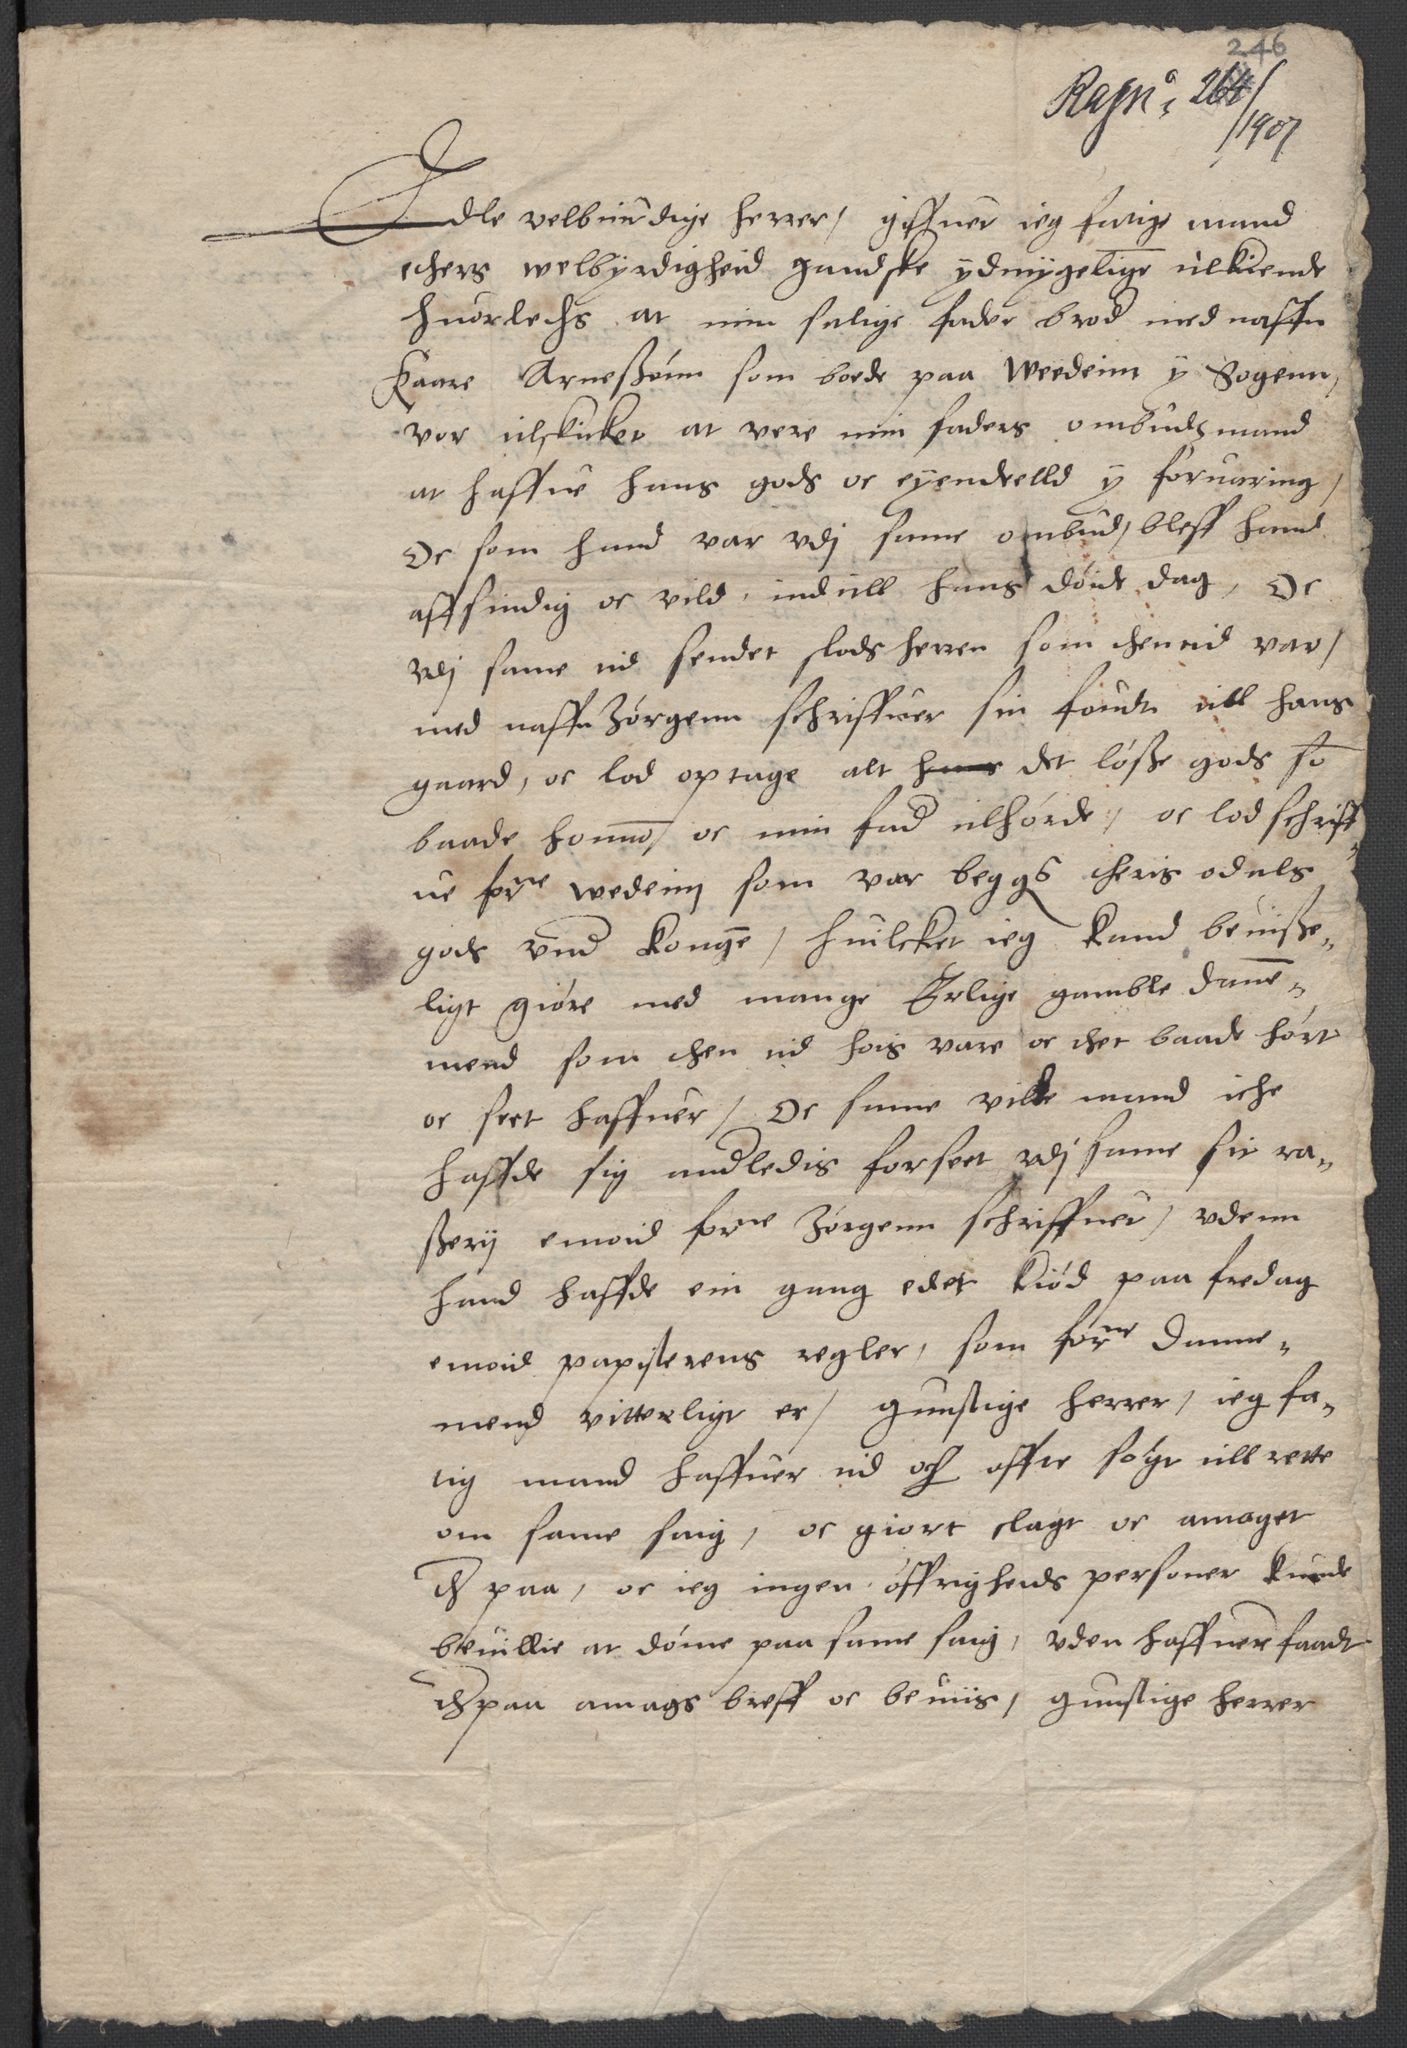 246
264/
1907
Edle velbiurdige herrer, giffuer ieg fatige mand
eders welbÿrdigheid gandske ÿdmÿgelige tilkiende
huorledis at min salige fader brod med naffn
Kaare Arneßønn som boede paa Weedeim ÿ Sogenn,
vor tilskicket at vere min faders ombudtzmand
at haffue hans gods oc eÿendeelld ÿ foruaring,
Oc som hand var vdj same ombud, bleff hand
affsindig oc vild, indtill hans døide dag, Oc
vdj same tid sendet slodsherren som den tid var,
med naffn Jørgenn schriffuer sin foudt till hans
gaard, oc lod optage alt hans det løsße gods so
baade honno, oc min fad tilhørde, oc lod schriff
ue forne wedeim som var beggis deris odals
gods vnd konge, huilcket ieg kand beuiße,
ligt giøre med mange Erlige gamble danne,
mend som den tid hois vare oc det baade hørt
oc seet haffuer, Oc same vilde mand iche
haffde sig andledis forseet vdj same sit ra,
ßerij emoid forne Jørgenn schriffuer, vdenn
hand haffde ein gang edet kiød paa fredag
emoid papisterens regler, som forne danne,
mend vitterligt er, gunstige herrer, ieg fa,
tig mand haffuer tid och offte søgt till rette
om same saig, oc giort clagt oc amaget
der paa, oc ieg ingen øffrigheids personer kunde
beuillie at døme paa same saig, vden haffuer faadt
der paa amags breff oc beuiis, gunstige herrer